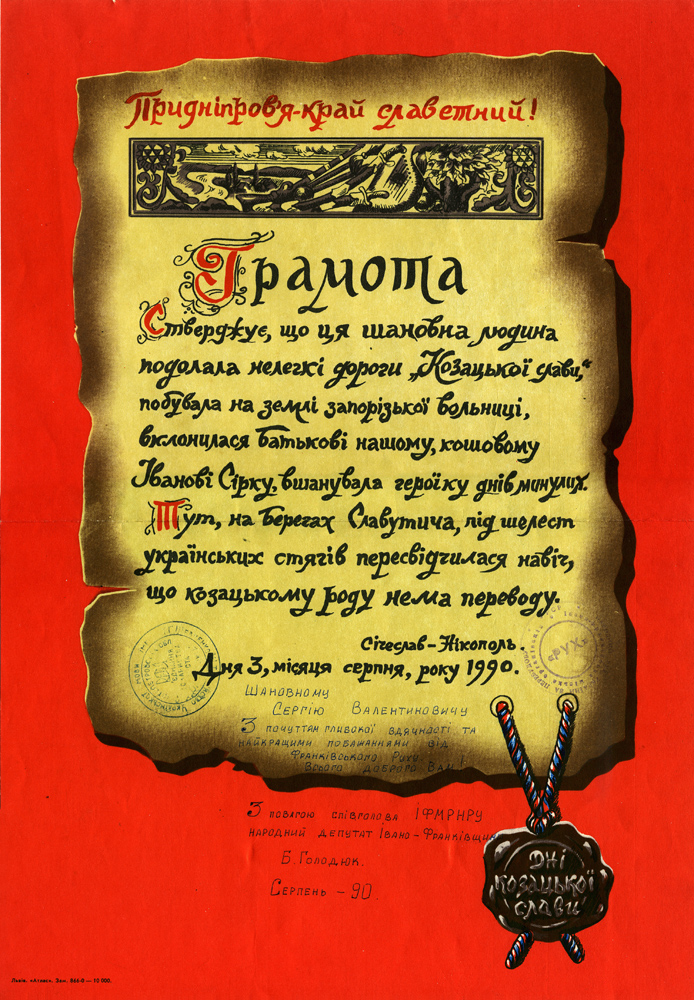 Придніпров'я-край славетний!
Грамота
Стверджує, що ця шановна людина
подолала нелегкі дороги „Козацької слави,“
побувала на землі запорізької вольниці,
вклонилася батькові нашому, кошовому
Іванові Сірку, вшанувала героїку днів минулих.
Тут, на берегах Славутича, під шелест
українських стягів пересвідчилася навіч,
що козацькому роду нема переводу.
Січеслав-Нікополь.
Дня 3, місяця серпня, року 1990.
«РУХ»
Шановному
Сергію Валентиновичу
З почуттям глибокої вдячності та
найкращими побажаннями від
Франківського Руху.
Всього доброго Вам!
З повагою співголова ІФМРНРУ
народний депутат Івано-Франківщини
Б. Голодюк.
Серпень - 90.
Дні
козацької
слави
Львів. «Атлас». Зам. 866-0 — 10 000.